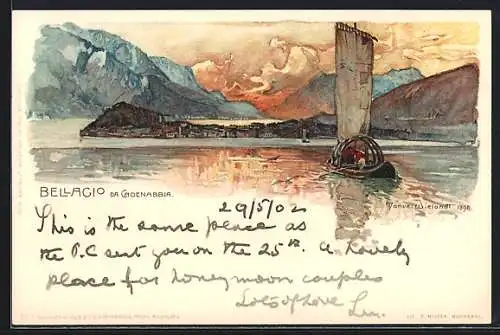 BELLAGIO DA CADENABBIA.
Manuel Wielandt 1898.
29/5/02
This is the same place as
the P.C sent you on the 25th. A lovely
place for honeymoon couples
Lots of Love